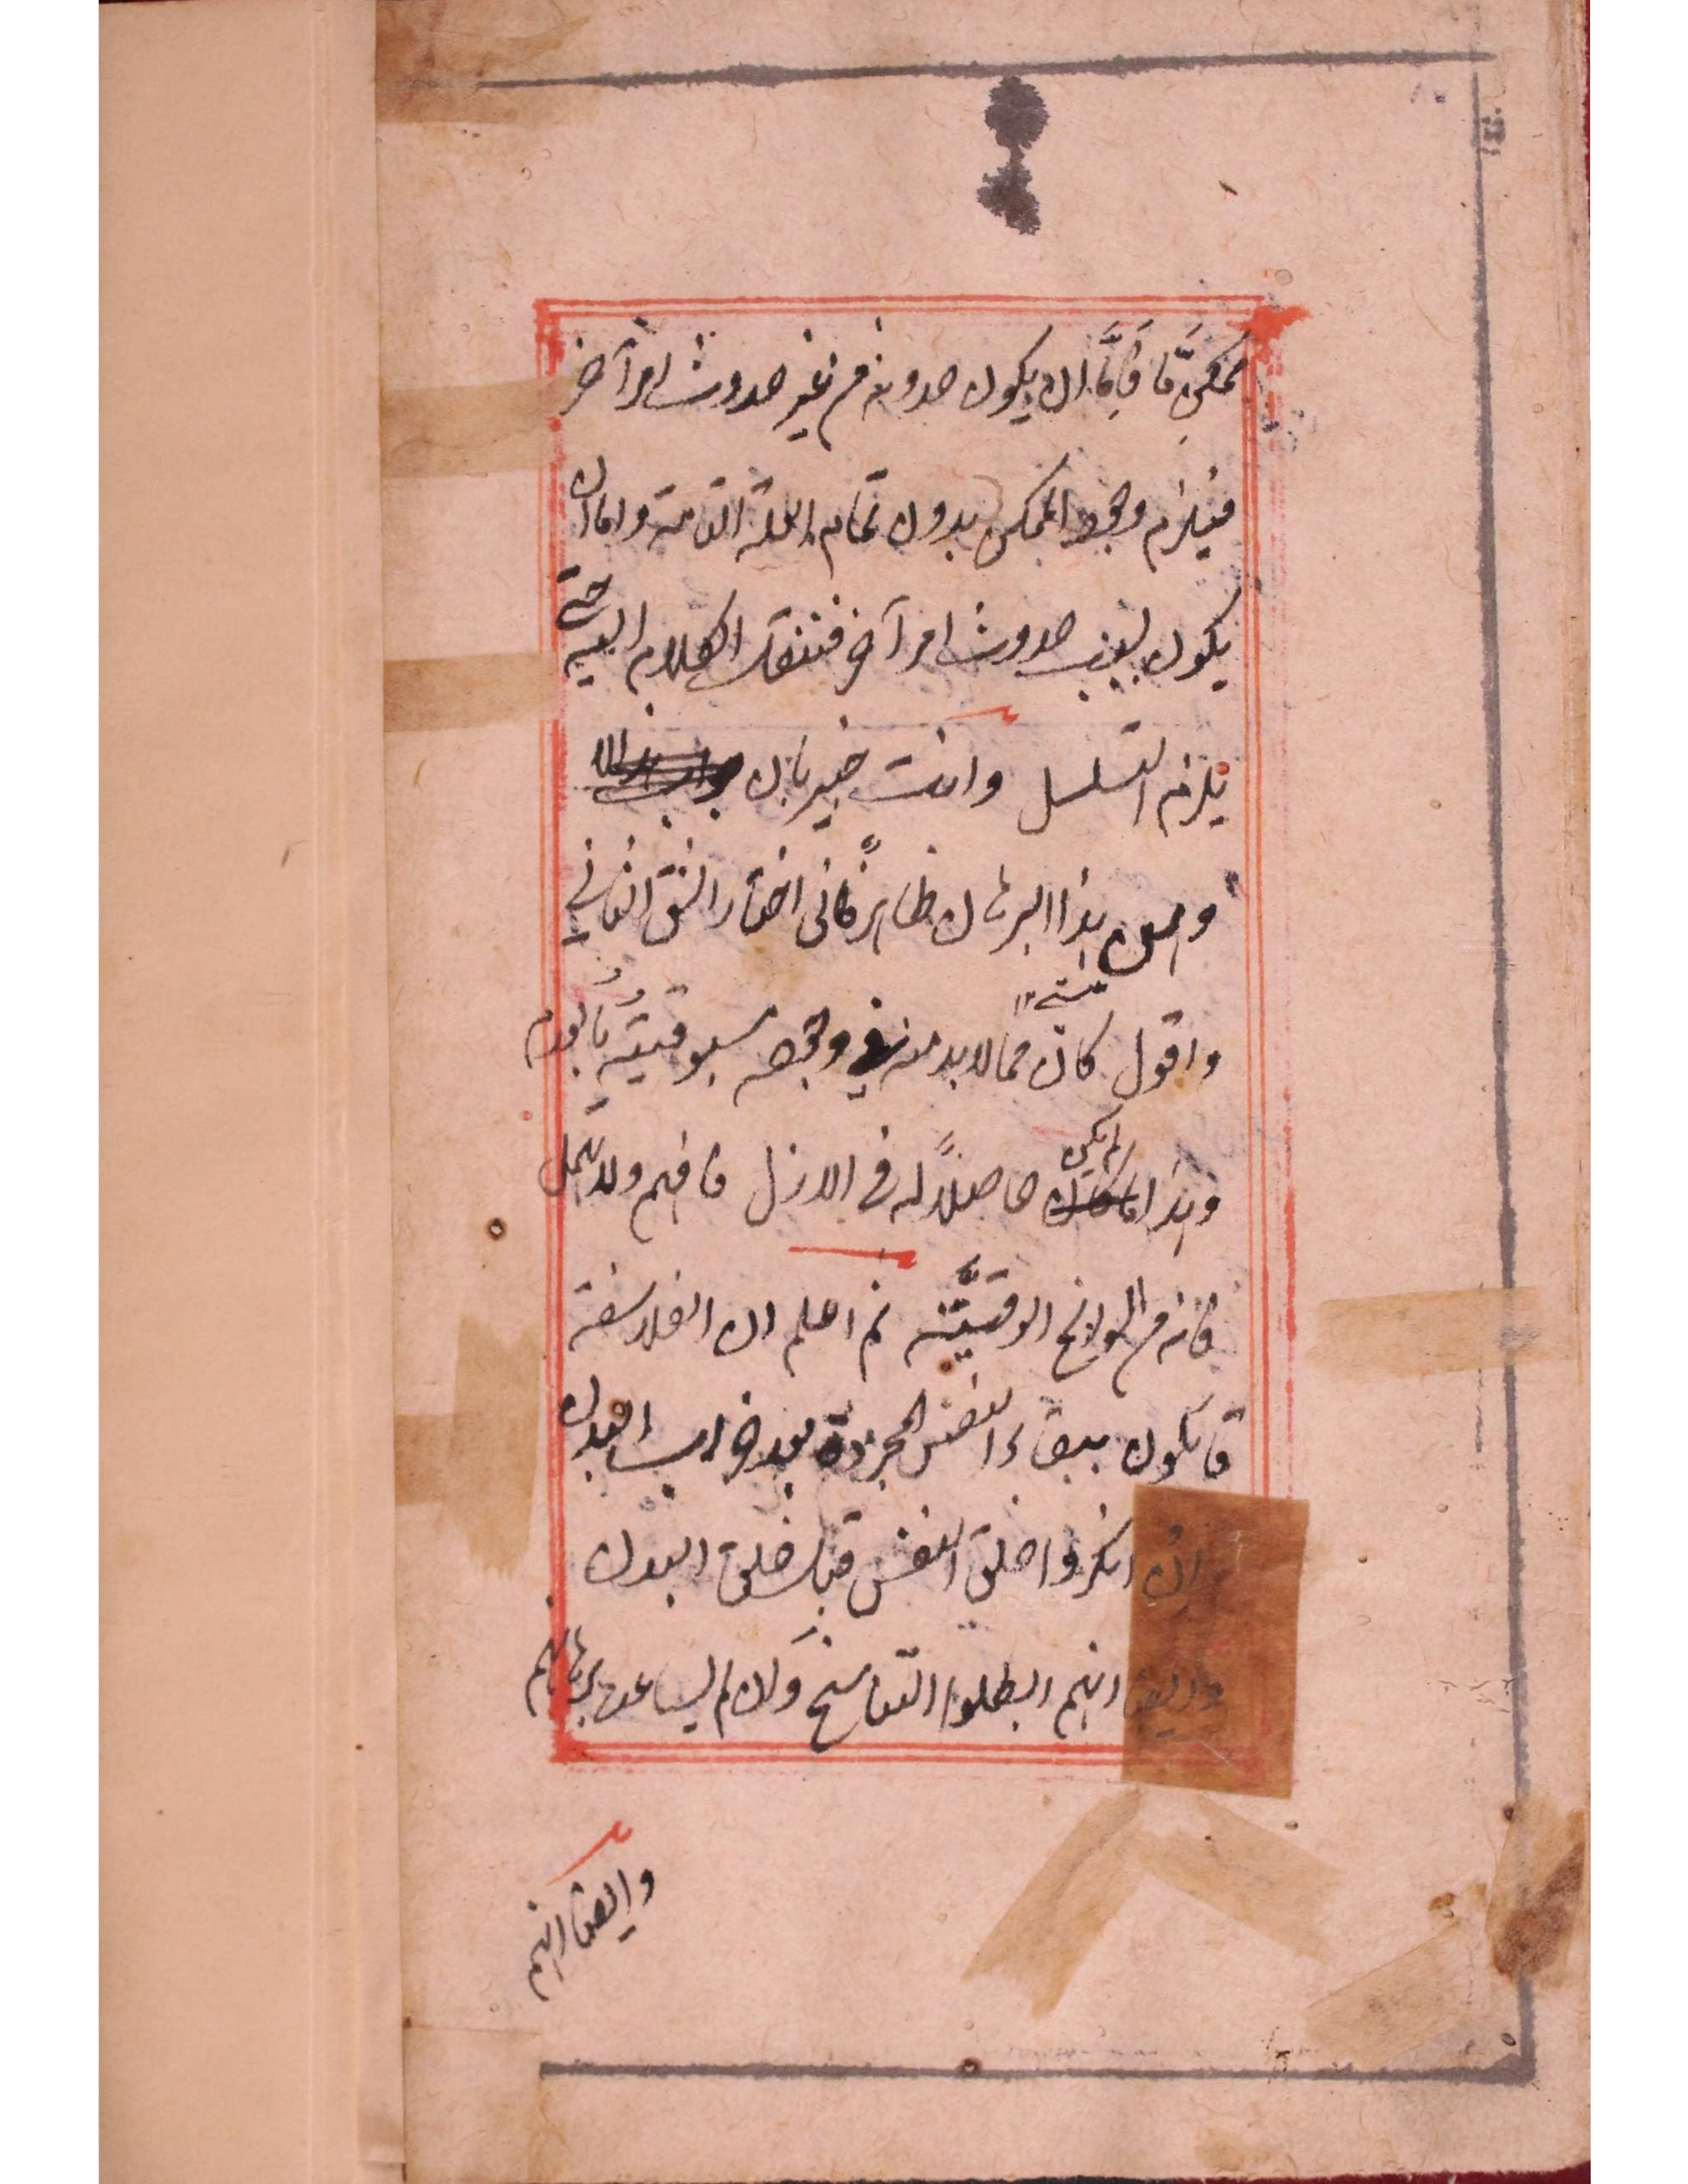 ممكنٌ مّا فامّا ان يكون حدوثه من غير حدوث امر آخر
فيلزم وجود الممكن بدون تمام العلة التامة واما ان
يكون بسبب حدوث امر آخر فننقل الكلام اليه حتى
يلزم التسلسل وانت خبير بان
هذا البرهان ظاهر فانى اختار الشق الثاني
واقول كان مما لا بد منه في وجوده مسبوقيته بالعدم
وهذا لم يكن حاصلاً له في الازل فافهم ولا تعجل
فانه من السوانح الوقتيّة ثم اعلم ان الفلاسفة
قائلون ببقاء النفس المجردة بعد خراب البدن
ان انكروا خلق النفس قبل خلق البدن
وايضا انهم ابطلوا التناسخ وان لم يساعد برهانهم
وايضا انهم